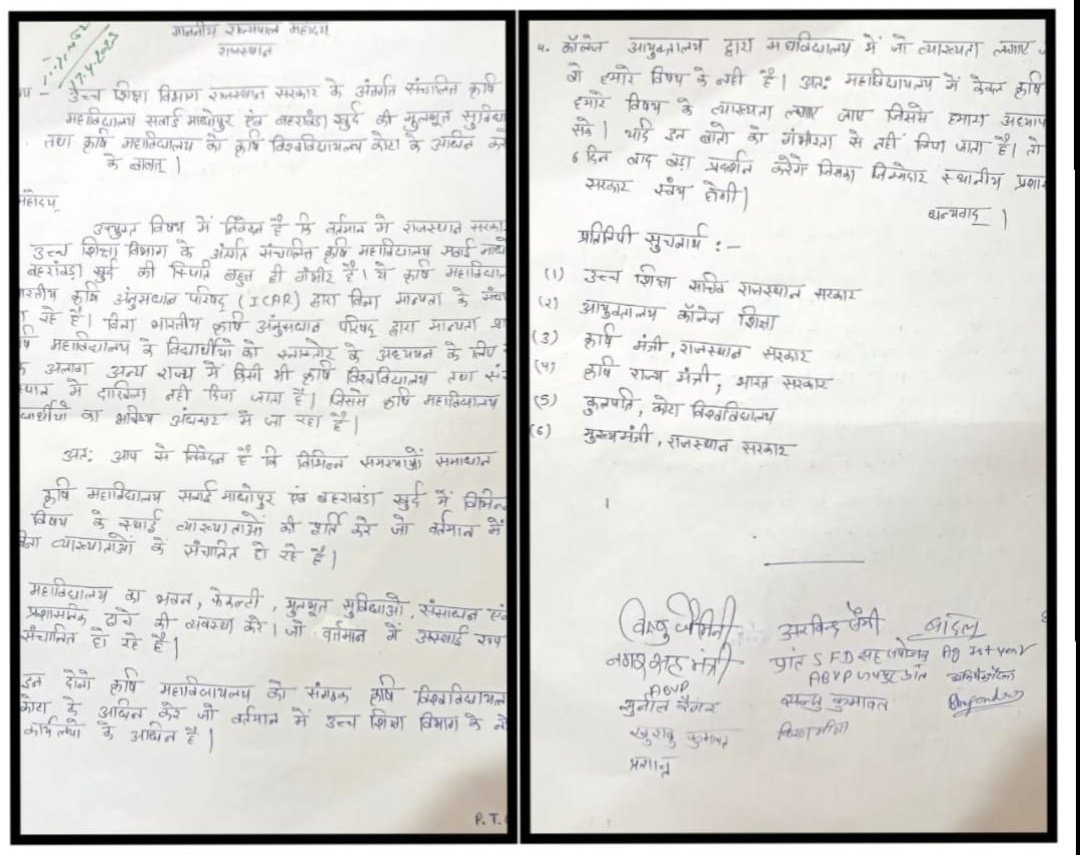 माननीय राज्यपाल महोदय
राजस्थान
17.4.2023
उच्च शिक्षा विभाग राजस्थान सरकार के अंतर्गत संचालित कृषि
महाविद्यालय सवाई माधोपुर एंव बहरावंडा खुर्द की मुलभूत सुविधा
तथा कृषि महाविद्यालय को कृषि विश्वविद्यालय कोटा के अधिन
के बाबत् ।
महोदय
उपर्युक्त विषय में निवेदन है कि वर्तमान मे राजस्थान सरका
उच्च शिक्षा विभाग के अंतर्गत संचालित कृषि महाविद्यालय सवाई माधो
बहरावंडा खुर्द की स्थिति बहुत ही गंभीर है। ये कृषि महाविद्याल
रतीय कृषि अनुसंधान परिषद् (ICAR) द्वारा बिना मान्यता के संचा
रहे है। बिना भारतीय कृषि अनुसंधान परिषद् द्वारा मान्यता प्रा
षि महाविद्यालय के विद्यार्थीयो को स्नात्तकोत्तर के अध्ययन के लिए
अलावा अन्य राज्य में किसी भी कृषि विश्वविद्यालय तथा सं
स्थान मे दाखिला नही दिया जाता है। जिससे कृषि महाविद्यालय
द्यार्थीयो का भविष्य अंधकार मे जा रहा है।
अत: आप से निवेदन है कि विभिन्न समस्याओं समाधान
कृषि महाविद्यालय सवाई माधोपुर एंव बहरावंडा खुर्द में विभिन्न
विषय के स्थाई व्याख्याताओं की पूर्ति करे जो वर्तमान में
बिना व्याख्याताओं के संचालित हो रहे है।
महाविद्यालय का भवन, फेकल्टी, मुलभूत सुविधाओ, संसाधन एंव
प्रशासनिक ढाचे की व्यवस्था करे। जो वर्तमान में अस्थाई रूप
संचालित हो रहे है।
इन दोनो कृषि महाविद्यालय को संगठक कृषि विश्वविद्यालय
कोटा के अधिन करे जो वर्तमान में उच्च शिक्षा विभाग के
के अधिन है।
P.T.
4. कॉलेज आयुक्तालय द्वारा महाविद्यालय में जो व्याख्यता लगाए
वो हमारे विषय के नही है। अत: महाविद्यालय में केवल कृषि
हमारे विषय के व्याख्यता लगाए जाए जिससे हमारा अध्याप
सके। यदि इन बातो को गंभीरता से नहीं लिया जाता है। तो
6 दिन बाद बड़ा प्रदर्शन करेंगे जिसका जिम्मेदार स्थानीय प्रशा
सरकार स्वंय होगी।
धन्यवाद ।
प्रतिलिपी सूचनार्थ :-
(1) उच्च शिक्षा सचिव राजस्थान सरकार
(2) आयुक्तालय कॉलेज शिक्षा
(3) कृषि मंत्री, राजस्थान सरकार
(4) कृषि राज्य मंत्री, भारत सरकार
(5) कुलपति, कोटा विश्वविद्यालय
(6) मुख्यमंत्री, राजस्थान सरकार
विष्णु जैमिनी
नगर सह मंत्री
ABVP
सुनील बैंगर
खुशबु कुमावत
अरविन्द
प्रांत SFD सह संयोजक
ABVP जयपुर प्रांत
कुमावत
Ag Ist year